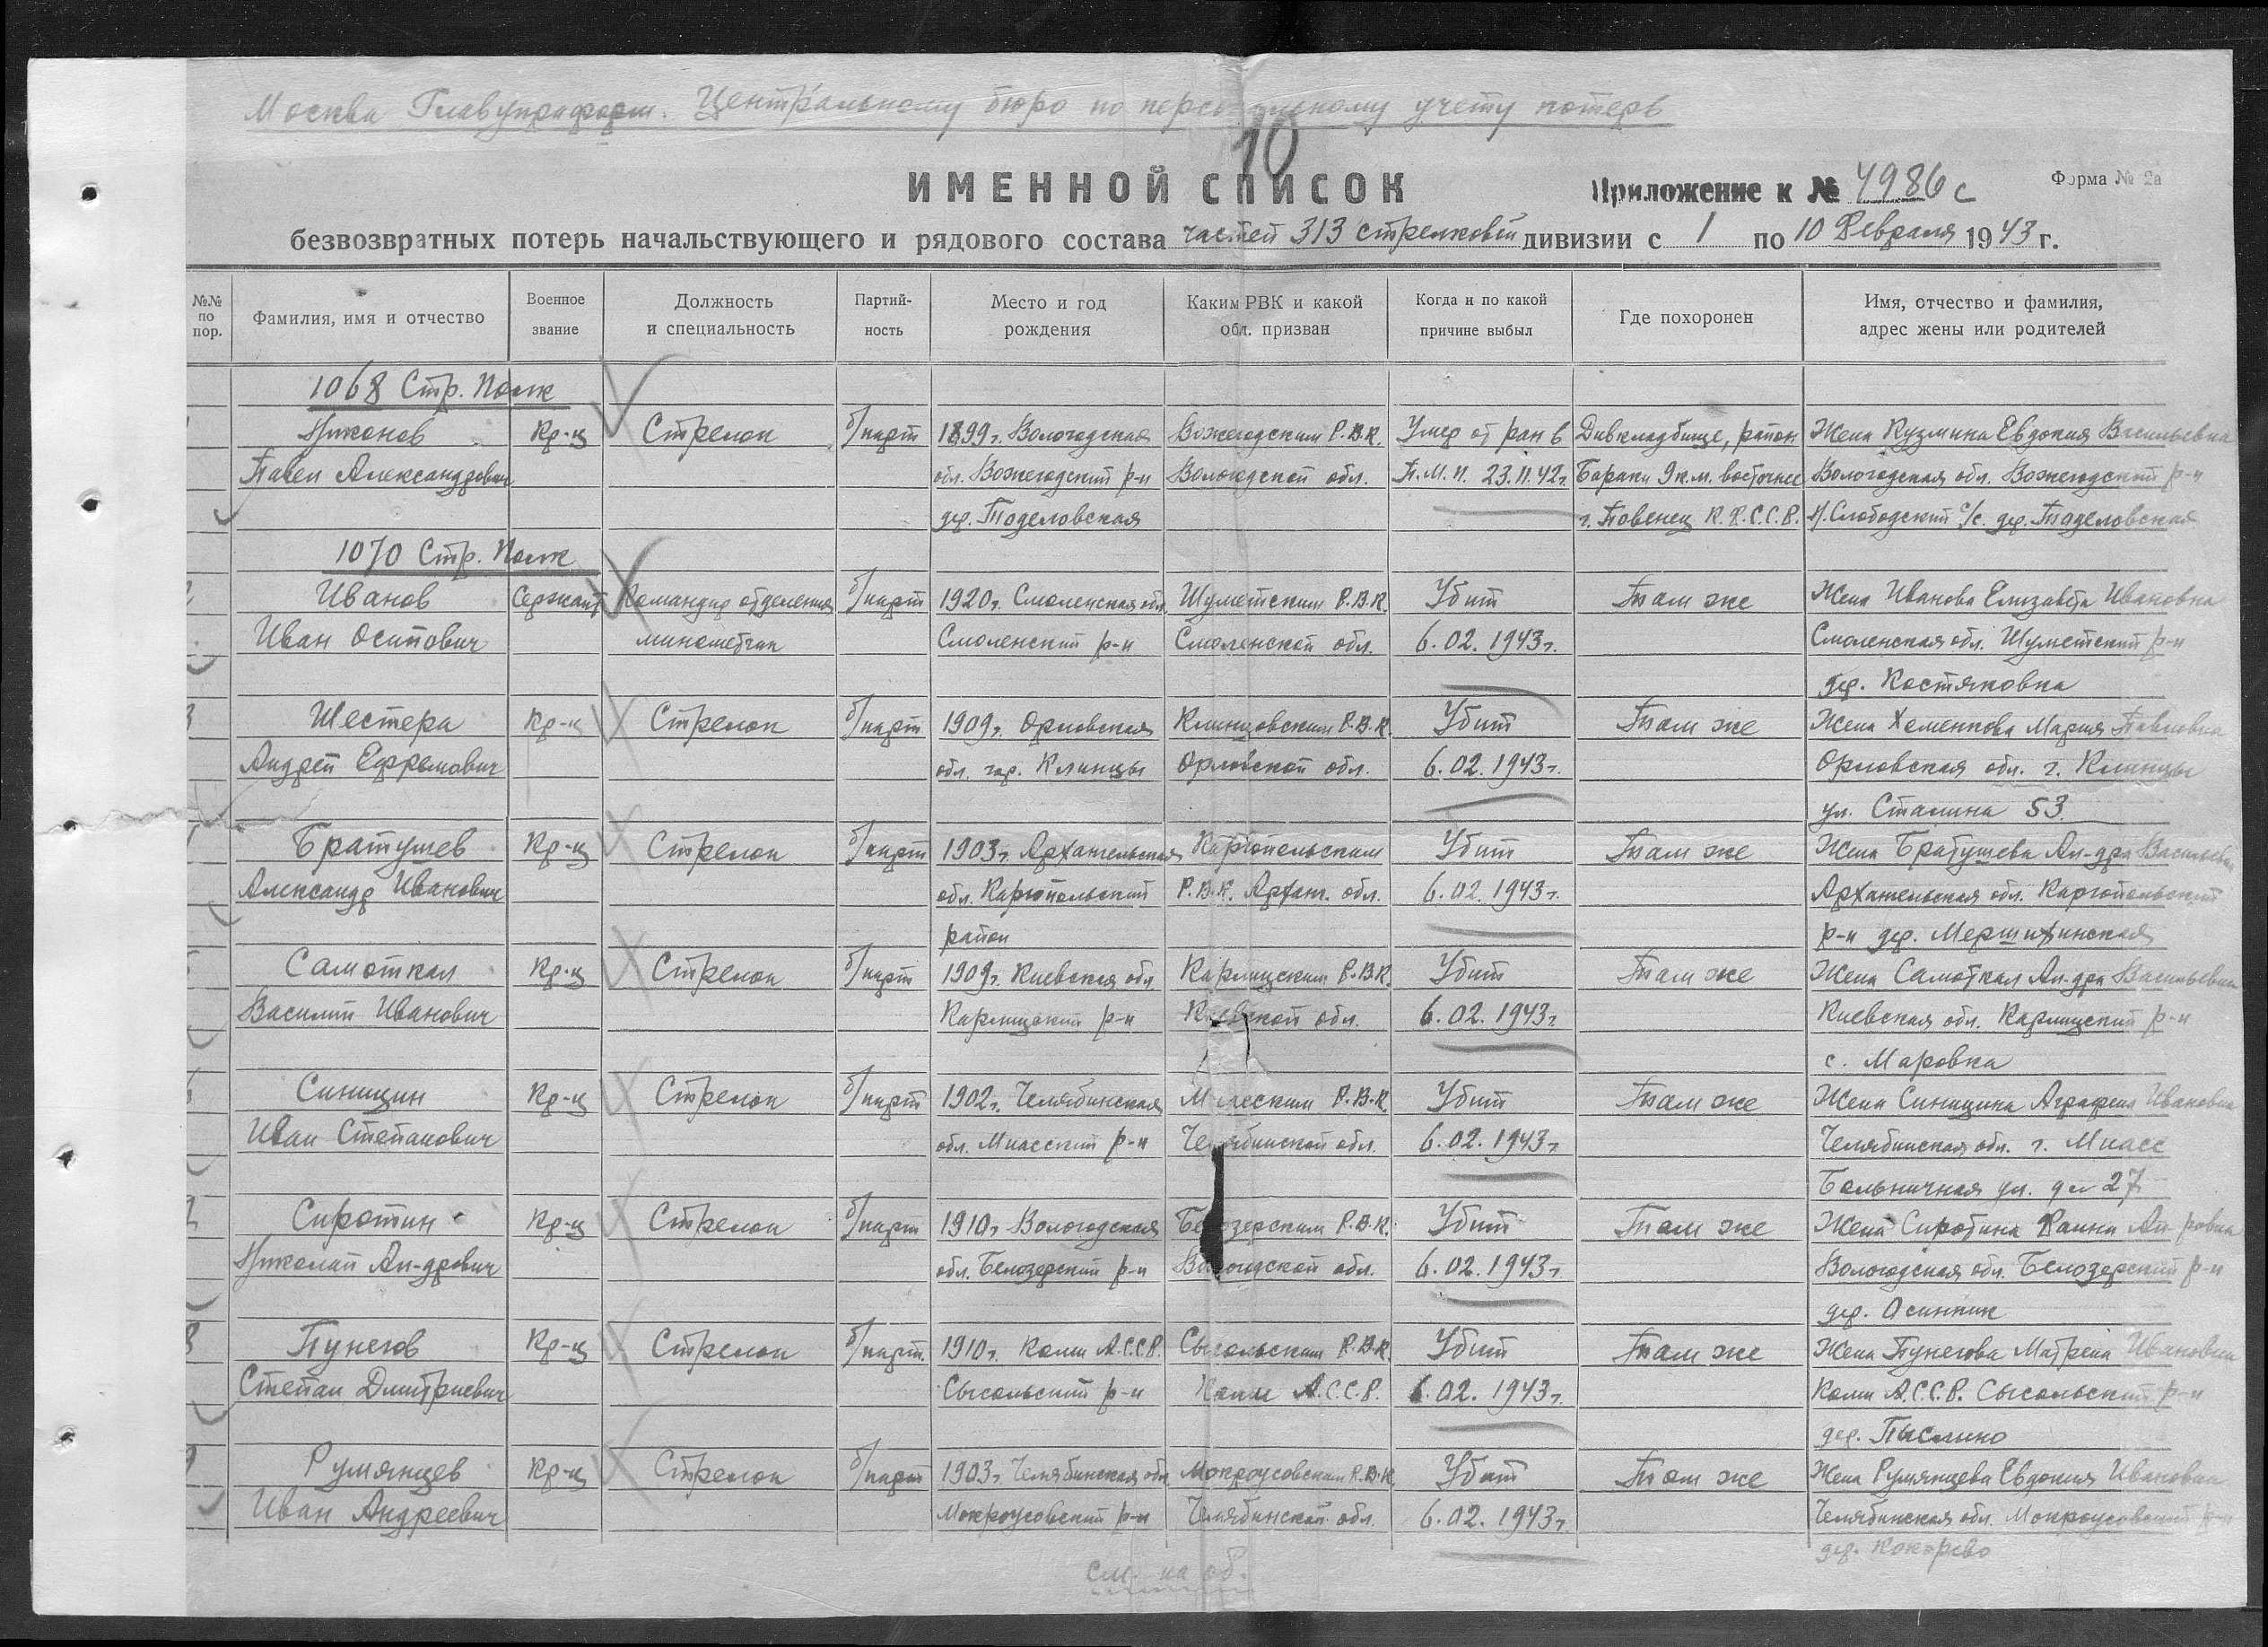 Москва Главупраформ. Центральному бюро по персональному учету потерь
10
ИМЕННОЙ СПИСОК
Приложение к № 4986с
Форма № 2а
безвозвратных потерь начальствующего и рядового состава частей 313 стрелковой дивизии с 1 по 10 Февраля 1943 г.
№№ по пор. Фамилия, имя и отчество Военное звание Должность и специальность Партийность Место и год рождения Каким РВК и какой обл. призван Когда и по какой причине выбыл Где похоронен Имя, отчество и фамилия, адрес жены или родителей
1068 Стр. Полк
Никонов Кр-ц Стрелок б/парт 1899г. Вологодская Вожегодским Р.В.К. Умер от ран в Дивкладбище, район Жена Кузмина Евдокия Васильевна
Павел Александрович обл. Вожегодский р-н Вологодской обл. П.М.П. 23.11.42г. Бараки 9 к.м. восточнее Вологодская обл. Вожегодский р-н
дер. Тоделовская г. Повенец К.Ф.С.С.Р. Н/Слободский с/с. дер. Тоделовская
1070 Стр. Полк
2 Иванов Сержант Командир отделения б/парт 1920г. Смоленская обл. Шуметским Р.В.К. Убит Там же Жена Иванова Елизавета Ивановна
Иван Осипович минометчик Смоленский р-н Смоленской обл. 6.02.1943г. Смоленская обл. Шуметский р-н
дер. Костяковка
3 Шестера Кр-ц Стрелок б/парт 1909г. Орловская Клинцовским Р.В.К. Убит Там же Жена Хоменкова Мария Павловна
Андрей Ефремович обл. гор. Клинцы Орловской обл. 6.02.1943г. Орловская обл. г. Клинцы
ул. Сталина 53
Братушев Кр-ц Стрелок б/парт 1903г. Архангельская Каргопольским Убит Там же Жена Братушева Ал-дра Васильевна
Александр Иванович обл. Каргопольский Р.В.К. Арханг. обл. 6.02.1943г. Архангельская обл. Каргопольский
район р-н дер. Мершихинская
5 Самоткал Кр-ц Стрелок б/парт 1909г. Киевская обл. Карлицским Р.В.К. Убит Там же Жена Самоткал Ал-дра Васильевна
Василий Иванович Карлицский р-н Киевской обл. 6.02.1943г. Киевская обл. Карлицский р-н
с. Маровка
6 Синицин Кр-ц Стрелок б/парт 1902г. Челябинская Миасским Р.В.К. Убит Там же Жена Синицина Аграфена Ивановна
Иван Степанович обл. Миасский р-н Челябинской обл. 6.02.1943г. Челябинская обл. г. Миасс
Больничная ул. д 27
Сиротин Кр-ц Стрелок б/парт 1910г. Вологодская Белозерским Р.В.К. Убит Там же Жена Сиротина
Николай Ал-дрович обл. Белозерский р-н Вологодской обл. 6.02.1943г. Вологодская обл. Белозерский р-н
дер. Осинник
8 Пунегов Кр-ц Стрелок б/парт. 1910г. Коми А.С.С.Р. Сысольским Р.В.К. Убит Там же Жена Пунегова Матрена Ивановна
Степан Дмитриевич Сысольский р-н Коми А.С.С.Р. 6.02.1943г. Коми А.С.С.Р. Сысольский р-н
дер. Пыслино
9 Румянцев Кр-ц Стрелок б/парт 1903г. Челябинская обл. Мокроусовским Р.В.К. Убит Там же Жена Румянцева Евдокия Ивановна
Иван Андреевич Мокроусовский р-н Челябинской обл. 6.02.1943г. Челябинская обл. Мокроусовский р-н
дер. Кокорево
см. на об.